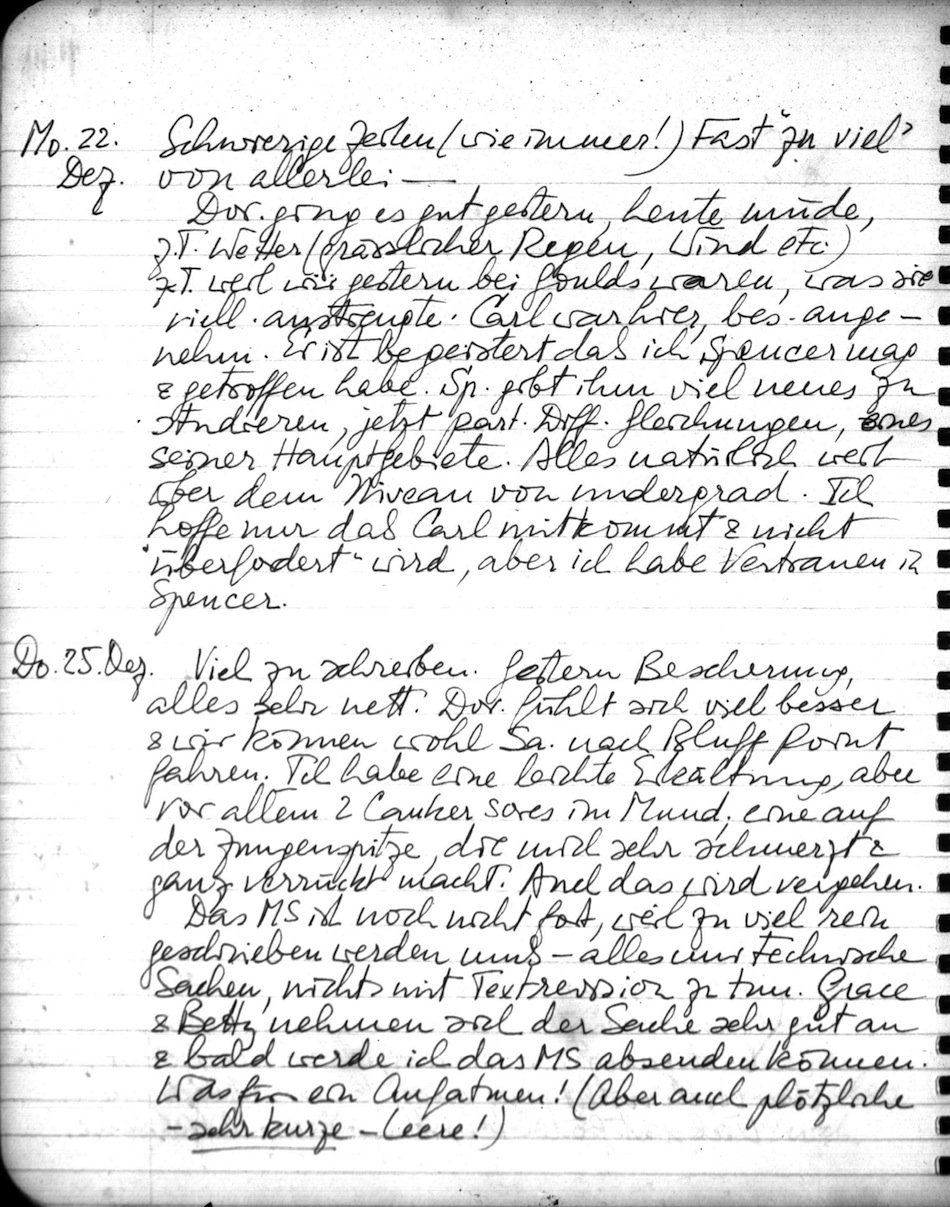 Mo. 22. Schwierige Zeiten (wie immer!) Fast "zu viel"
Dez. von allerlei —
Dor. ging es gut gestern, heute müde,
z.T. Wetter (grässlicher Regen, Wind etc.)
z.T. weil wir gestern bei Goulds waren, was sie
viell. anstrengte. Carl war hier, bes. ange-
nehm. Er ist begeistert das ich Spencer mag
& getroffen habe. Sp. gibt ihm viel neues zu
studieren, jetzt part. Diff. Gleichungen, eines
seiner Hauptgebiete. Alles natürlich weit
über dem Niveau von undergrad. Ich
hoffe nur das Carl mitkommt & nicht
"überfodert" wird, aber ich habe Vertrauen in
Spencer.
Do. 25. Dez. Viel zu schreiben. Gestern Bescherung,
alles sehr nett. Dor. fühlt sich viel besser
& wir können wohl Sa. nach Bluff Point
fahren. Ich habe eine leichte Erkältung, aber
vor allem 2 Canker sores im Mund, eine auf
der Zungenspitze, die mich sehr schmerzt &
ganz verrückt macht. Auch das wird vergehen.
Das MS ist noch nicht fort, weil zu viel rein
geschrieben werden muss – alles nur technische
Sachen, nichts mit Textrevision zu tun. Grace
& Betty nehmen sich der Sache sehr gut an
& bald werde ich das MS absenden können.
Was für ein Aufatmen! (Aber auch plötzliche
– sehr kurze – Leere!)